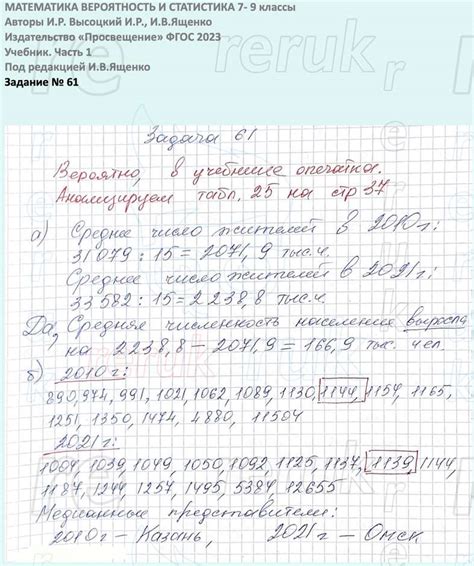 МАТЕМАТИКА ВЕРОЯТНОСТЬ И СТАТИСТИКА 7- 9 классы
Авторы И.Р. Высоцкий И.Р., И.В.Ященко
Издательство «Просвещение» ФГОС 2023
Учебник. Часть 1
Под редакцией И.В.Ященко
Задание № 61
reruk
Задача 61
Вероятно, в учебнике опечатка.
Анализируем табл. 25 на стр 37
а) Среднее число жителей в 2010г:
31 079 : 15 = 2071,9 тыс.ч.
Среднее число жителей в 2021г:
33 582 : 15 = 2238,8 тыс.ч.
Да, Средняя численность населения выросла
на 2238,8 - 2071,9 = 166,9 тыс. чел.
б) 2010г:
890, 974, 991, 1021, 1062, 1089, 1130, 1144, 1154, 1165,
1251, 1350, 1474, 4880, 11504
2021г:
1004, 1039, 1049, 1050, 1092, 1125, 1137, 1139, 1144,
1187, 1244, 1257, 1495, 5384, 12655
Медианные представители:
2010г - Казань, 2021г - Омск